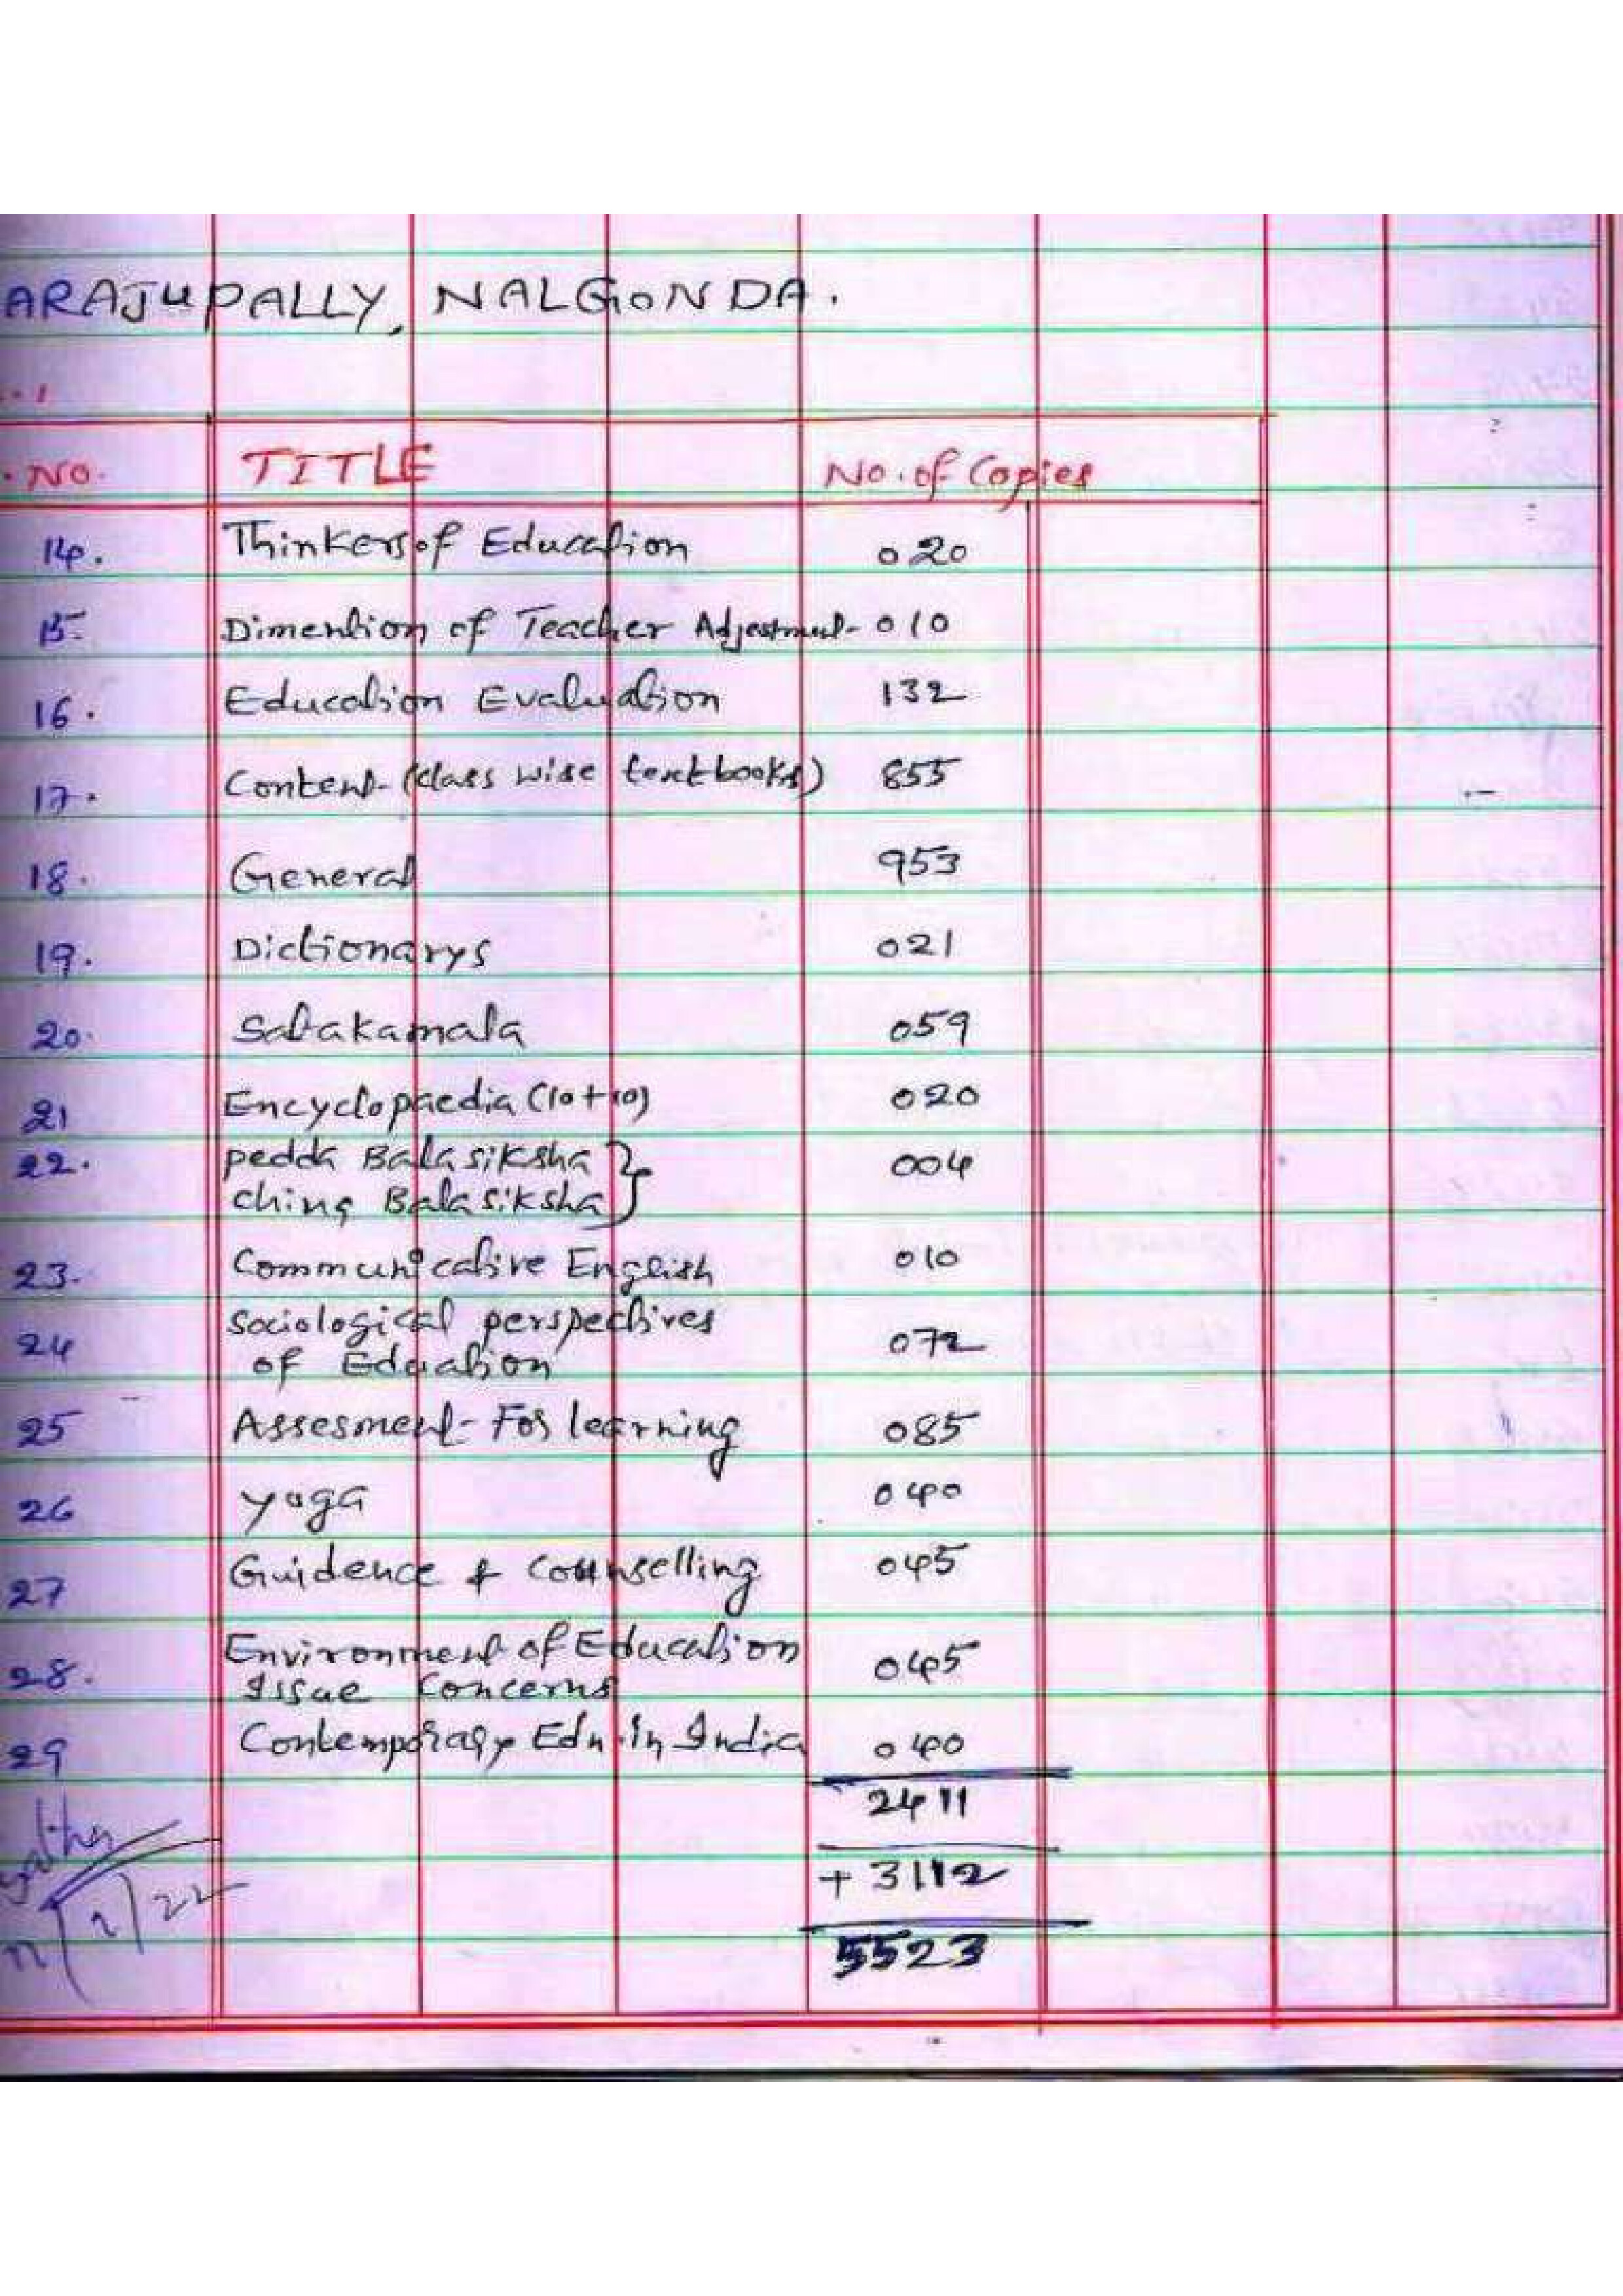 ARAJUPALLY, NALGONDA.
. No. TITLE No. of Copies
14. Thinkers of Education 020
15. Dimention of Teacher Adjestment 010
16. Education Evaluation 132
17. Content (Class wise textbooks) 855
18. General 953
19. Dictionarys 021
20. Satakamala 059
21 Encyclopaedia (10+10) 020
22. pedda Balasiksha } 004
china Balasiksha
23. Communicative English 010
24 Sociological perspectives
of Education 072
25 Assesment For learning 085
26 yoga 040
27 Guidence & Counselling 045
28. Environment of Education
Issue Concerns 045
29 Contemporary Edn. in India 040
2411
+ 3112
5523